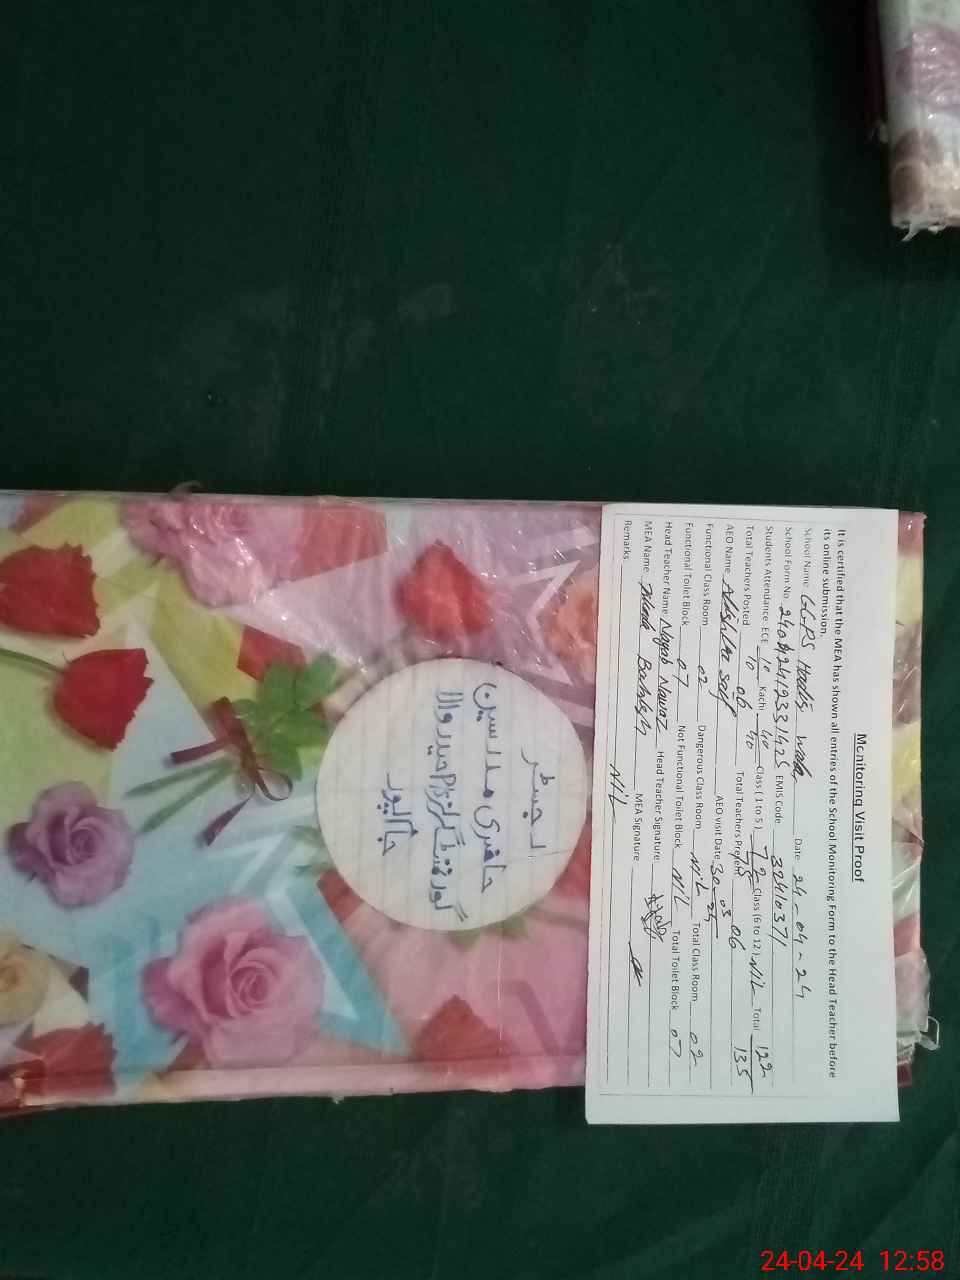 Monitoring Visit Proof
It is certified that the MEA has shown all entries of the School Monitoring Form to the Head Teacher before
its online submission.
School Name GGPS Wala Date 24-04-24
School Form No EMIS Code 32410371
Students Attendance ECE 10/10 Kachi 40/40 Class (1 to 5) 72 Class (6 to 12) NIL Total 122/135
Total Teachers Posted 06 Total Teachers Present 06
AEO Name AEO visit Date 30-03-24
Functional Class Room 02 Dangerous Class Room NIL Total Class Room 02
Functional Toilet Block 07 Not Functional Toilet Block NIL Total Toilet Block 07
Head Teacher Name Nawaz Head Teacher Signature
MEA Name Bakhsh MEA Signature
Remarks NIL
رجسٹر
حاضری مدرسین
گورنمنٹ گرلز P/S حیدر والا
24-04-24 12:58